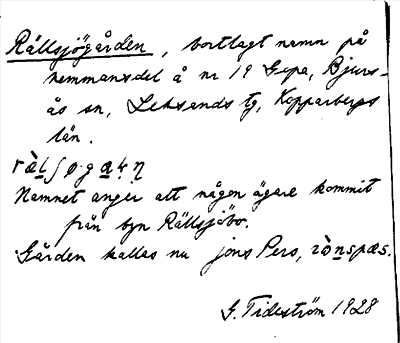 Rällsjögården, bortlagt namn på
hemmansdel å nr 19 Gopa, Bjurs-
ås sn, Leksands tg, Kopparbergs
län.
Namnet anger att någon ägare kommit
från byn Rällsjöbo.
Gården kallas nu jons Pers,
G. Tideström 1928